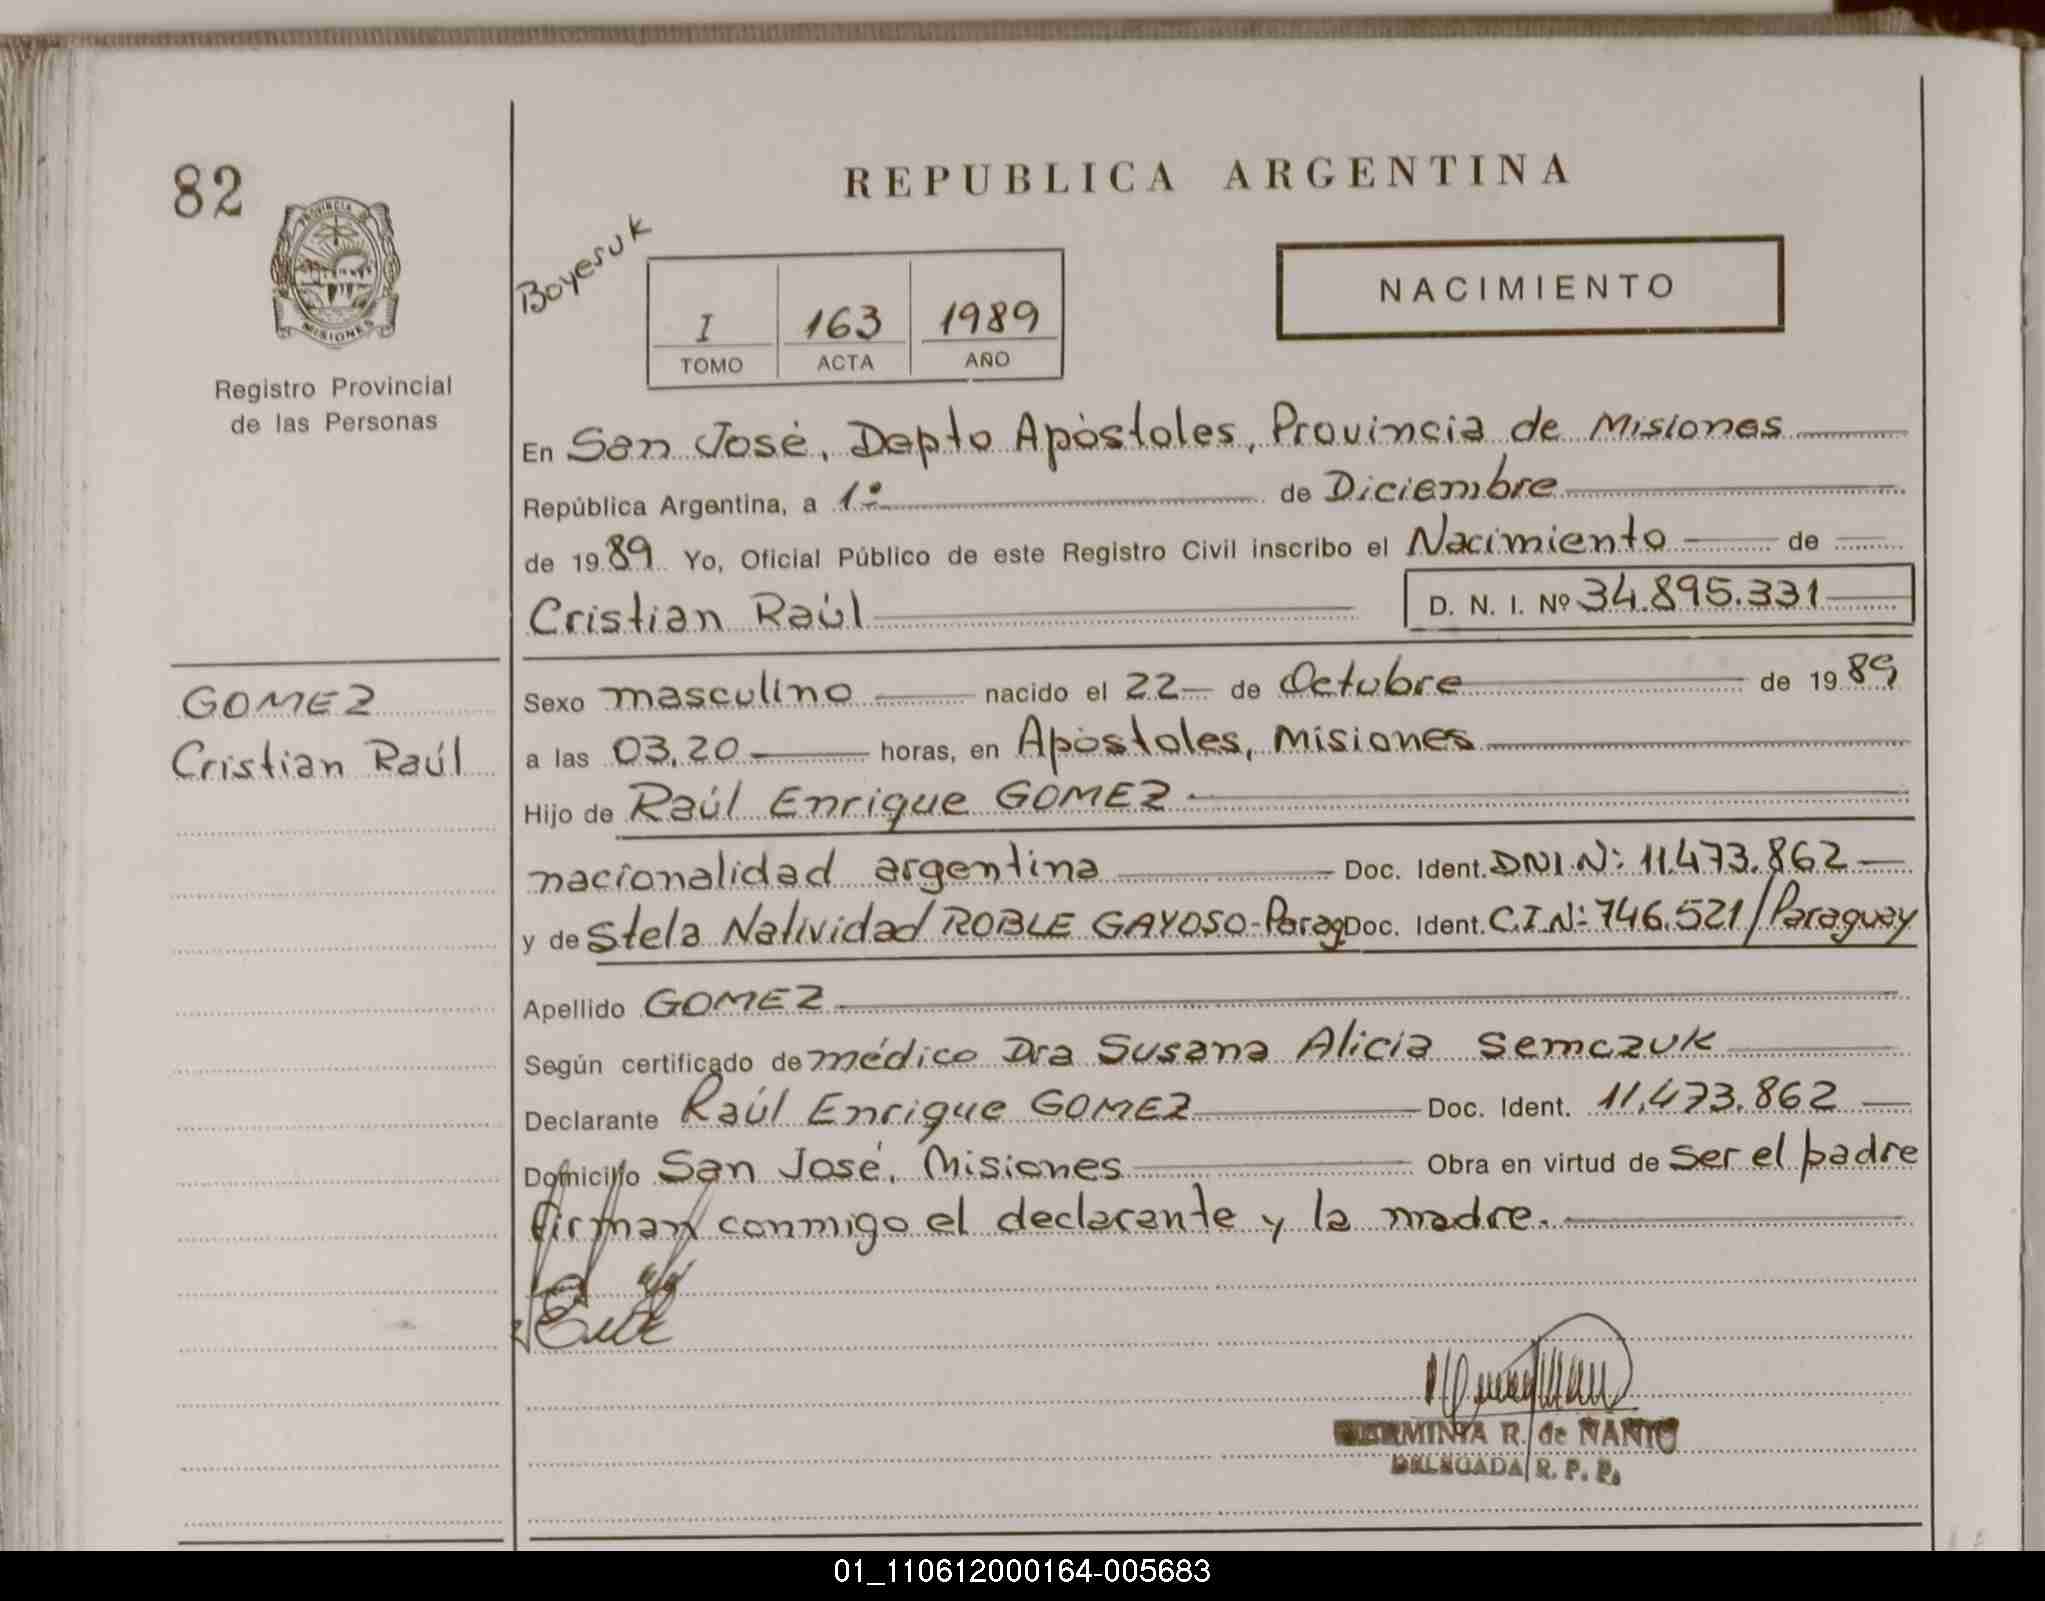 82
PROVINCIA DE
MISIONES
Registro Provincial
de las Personas
GOMEZ
Cristian Raúl
REPUBLICA ARGENTINA
Boyesuk
NACIMIENTO
I 163 1989
TOMO ACTA AÑO
En San José, Depto Apóstoles, Provincia de Misiones
República Argentina, a 1º de Diciembre
de 1989 Yo, Oficial Público de este Registro Civil inscribo el Nacimiento de
Cristian Raúl D. N. I. Nº 34.895.331
Sexo masculino nacido el 22 de Octubre de 1989
a las 03,20 horas, en Apóstoles, Misiones
Hijo de Raúl Enrique GOMEZ
nacionalidad argentina Doc. Ident. DNI.Nº: 11.473.862
y de Stela Natividad ROBLE GAYOSO-Parag Doc. Ident. C.I.Nº: 746.521/Paraguay
Apellido GOMEZ
Según certificado de médico Dra Susana Alicia Semczuk
Declarante Raúl Enrique GOMEZ Doc. Ident. 11.473.862
Domicilio San José, Misiones Obra en virtud de Ser el padre
firman conmigo el declarante y la madre.
R. de ÑAÑIO
DELEGADA R. P. P.
01_110612000164-005683